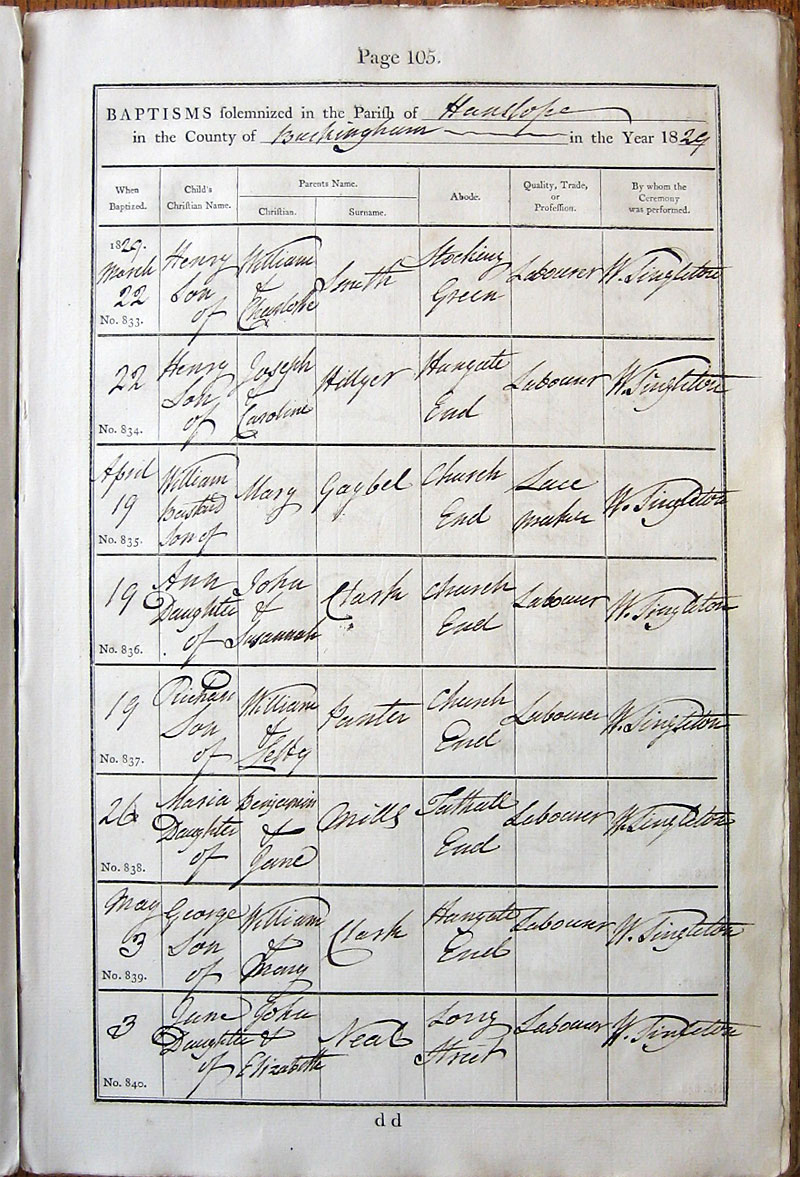 Page 105.
BAPTISMS solemnized in the Parish of Hanslope
in the County of Buckingham in the Year 1829
When Baptized. Child's Christian Name. Parents Name. Christian. Surname. Abode. Quality, Trade, or Profession. By whom the Ceremony was performed.
1829. March 22 No. 833. Henry Son of William & Charlotte Smith Stocking Green Labourer W. Singleton
22 No. 834. Henry Son of Joseph & Caroline Hillyer Hangate End Labourer W. Singleton
April 19 No. 835. William Bastard Son of Mary Gaybel Church End Lace maker W. Singleton
19 No. 836. Ann Daughter of John & Susannah Clark Church End Labourer W. Singleton
19 No. 837. Richard Son of William & Panter Church End Labourer W. Singleton
26 No. 838. Maria Daughter of Benjamin & Jane Mills Tathall End Labourer W. Singleton
May 3 No. 839. George Son of William & Mary Clark Hangate End Labourer W. Singleton
3 No. 840. Jane Daughter of John & Elizabeth Neal Long Street Labourer W. Singleton
d d